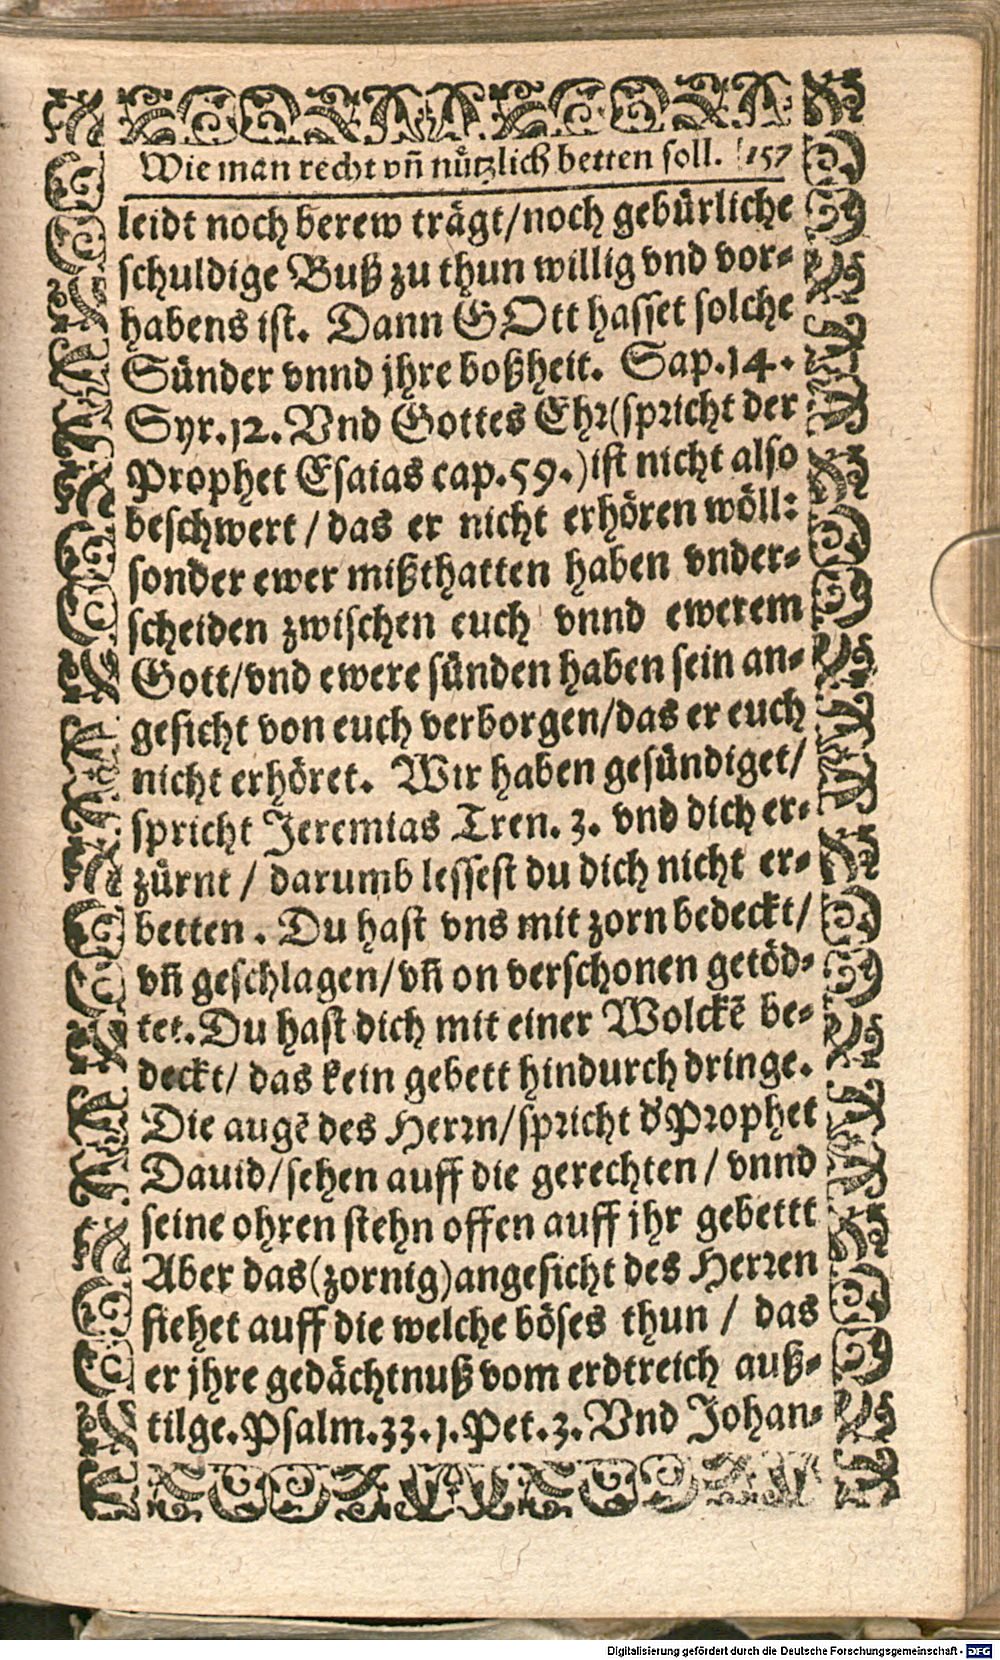 Wie man recht vñ nützlich betten soll. 157
leidt noch berew trägt/noch gebürliche
schuldige Buß zu thun willig vnd vor-
habens ist. Dann GOtt hasset solche
Sünder vnnd jhre boßheit. Sap.14.
Syr.12. Vnd Gottes Ehr(spricht der
Prophet Esaias cap.59.)ist nicht also
beschwert/das er nicht erhören wöll:
sonder ewer mißthatten haben vnder-
scheiden zwischen euch vnnd ewerem
Gott/vnd ewere sünden haben sein an-
gesicht von euch verborgen/das er euch
nicht erhöret. Wir haben gesündiget/
spricht Jeremias Tren. 3. vnd dich er-
zürnt / darumb lessest du dich nicht er-
betten. Du hast vns mit zorn bedeckt/
vñ geschlagen/vñ on verschonen getöd-
tet. Du hast dich mit einer Wolckẽ be-
deckt/ das kein gebett hindurch dringe.
Die augẽ des Herrn/spricht d' Prophet
Dauid/sehen auff die gerechten/ vnnd
seine ohren stehn offen auff jhr gebettt
Aber das(zornig)angesicht des Herren
siehet auff die welche böses thun / das
er jhre gedächtnuß vom erdtreich auß-
tilge. Psalm.33.1.Pet.3. Vnd Johan-
Digitalisierung gefördert durch die Deutsche Forschungsgemeinschaft - DFG